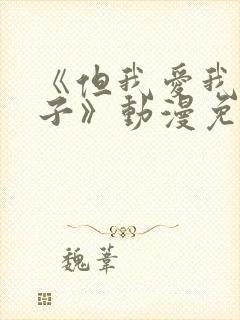 《但我爱我
子》动漫免
魏苇